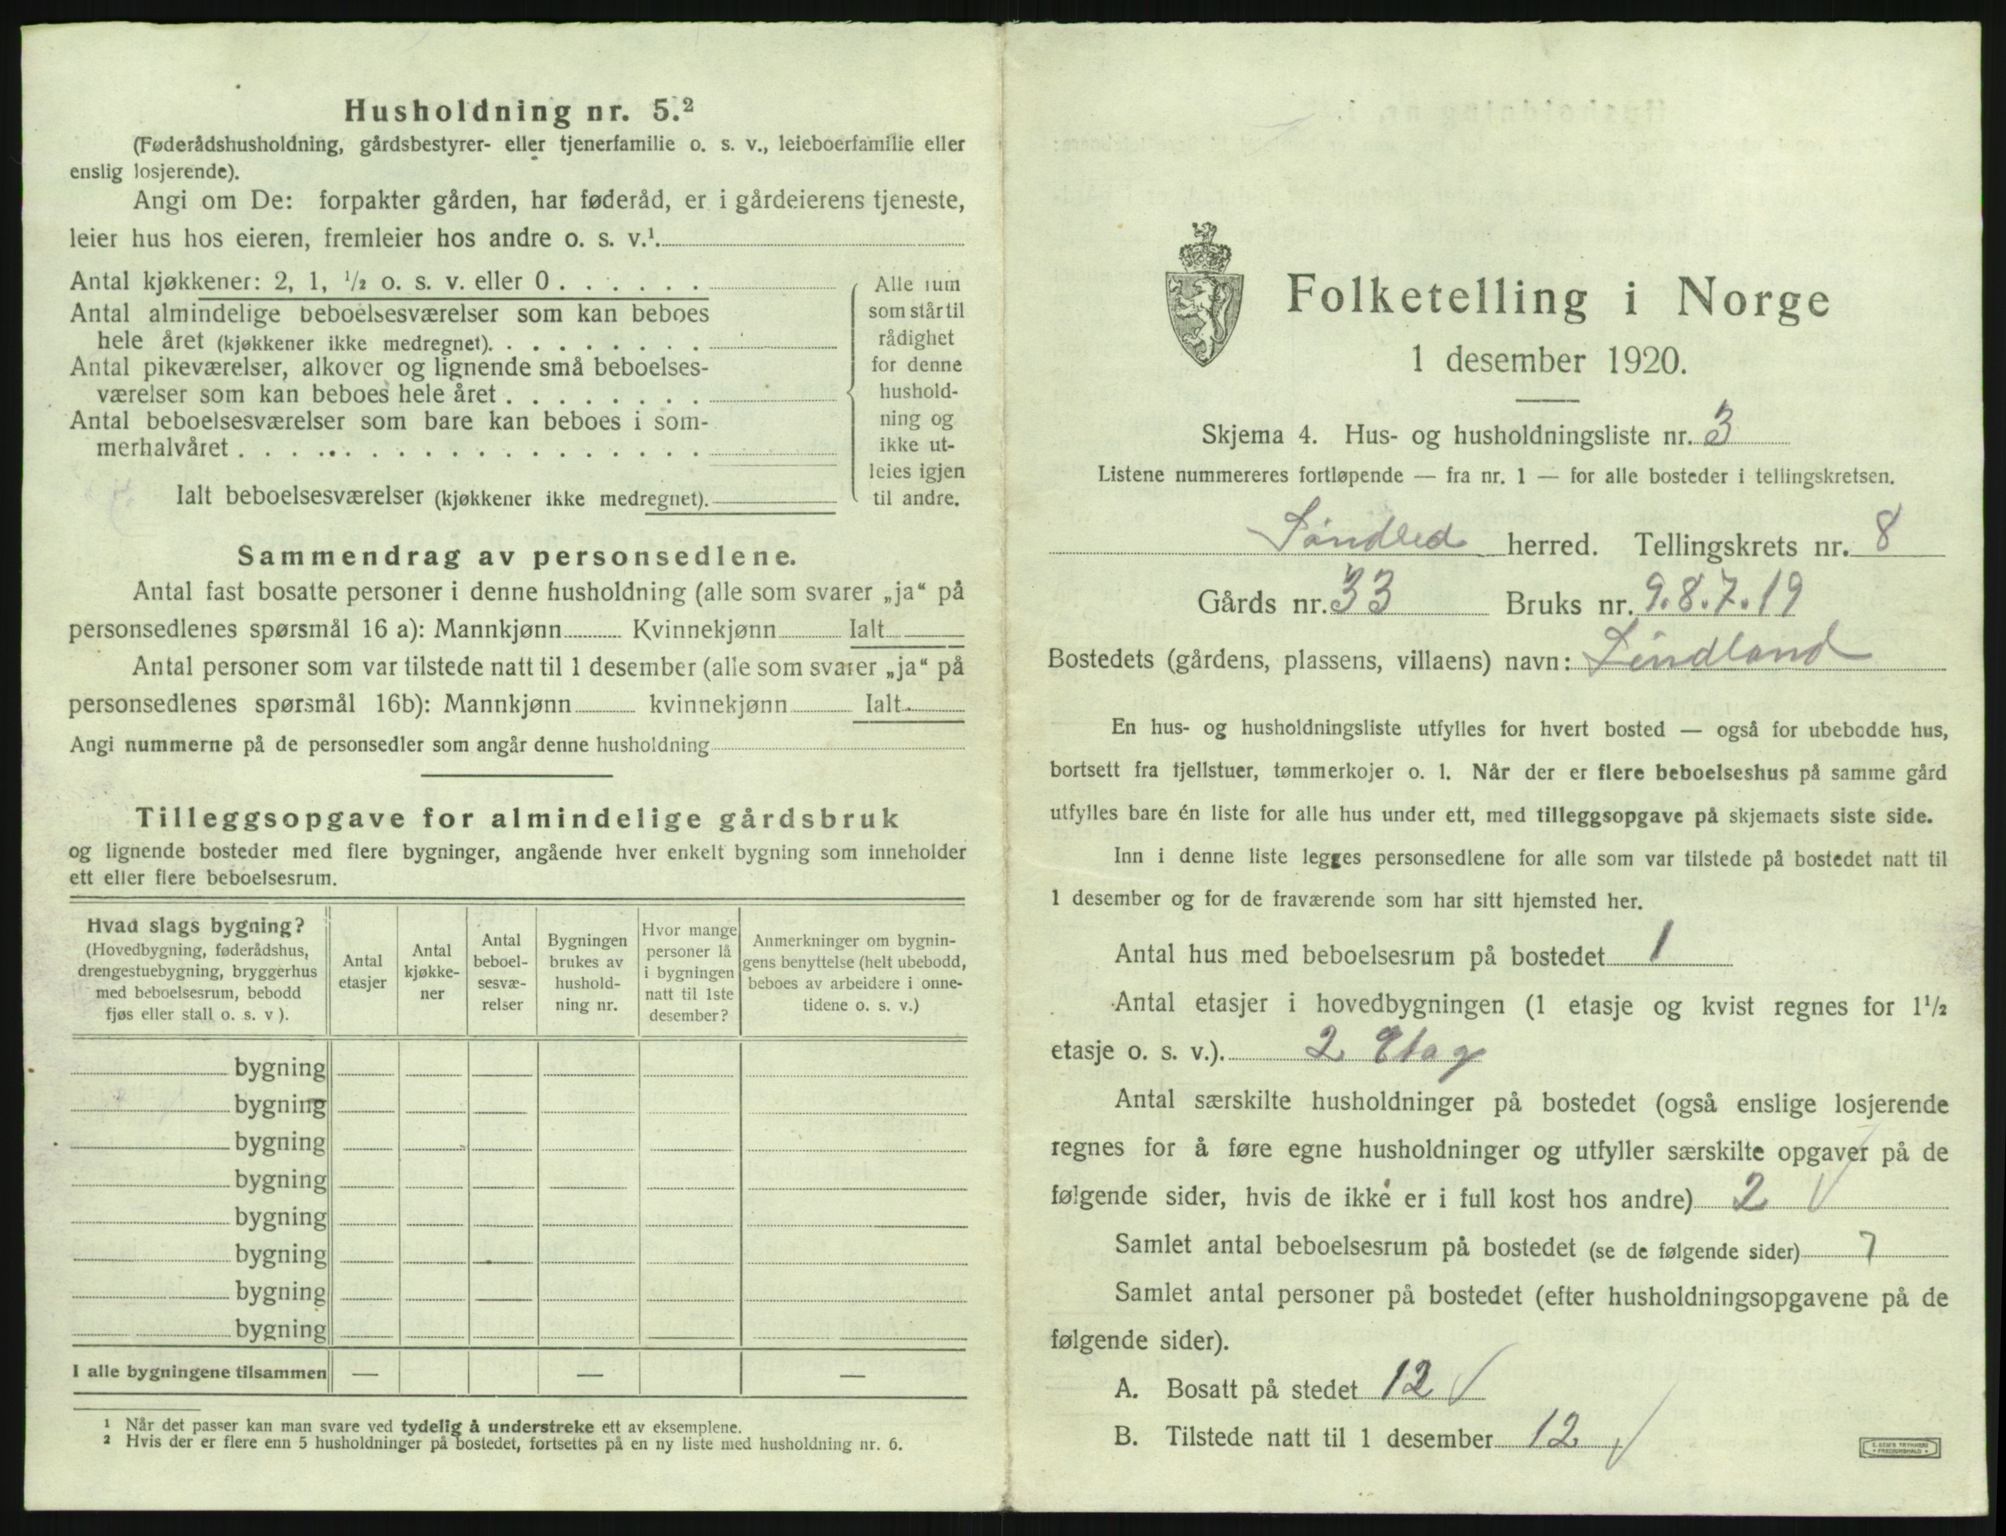 Husholdning nr. 5.²
(Føderådshusholdning, gårdsbestyrer- eller tjenerfamilie o. s. v., leieboerfamilie eller
enslig losjerende).
Angi om De: forpakter gården, har føderåd, er i gårdeierens tjeneste,
leier hus hos eieren, fremleier hos andre o. s. v.¹.
Antal kjøkkener: 2, 1, ½ o. s. v. eller 0 . . . . . .
Antal almindelige beboelsesværelser som kan beboes
hele året (kjøkkener ikke medregnet). . . . . . . . .
Antal pikeværelser, alkover og lignende små beboelses-
værelser som kan beboes hele året . . . . . . . .
Antal beboelsesværelser som bare kan beboes i som-
merhalvåret . . . . . . . . . . . . . . . . . .
Ialt beboelsesværelser (kjøkkener ikke medregnet).
Alle rum
som står til
rådighet
for denne
hushold-
ning og
ikke ut-
leies igjen
til andre.
Sammendrag av personsedlene.
Antal fast bosatte personer i denne husholdning (alle som svarer „ja“ på
personsedlenes spørsmål 16 a): Mannkjønn Kvinnekjønn Ialt
Antal personer som var tilstede natt til 1 desember (alle som svarer „ja“ på
personsedlenes spørsmål 16b): Mannkjønn kvinnekjønn Ialt
Angi nummerne på de personsedler som angår denne husholdning
Tilleggsopgave for almindelige gårdsbruk
og lignende bosteder med flere bygninger, angående hver enkelt bygning som inneholder
ett eller flere beboelsesrum.
Hvad slags bygning?
(Hovedbygning, føderådshus,
drengestuebygning, bryggerhus
med beboelsesrum, bebodd
fjøs eller stall o. s. v ).
Antal
etasjer
Antal
kjøkke-
ner
Antal
beboel-
sesvæ-
relser
Bygningen
brukes av
hushold-
ning nr.
Hvor mange
personer lå
i bygningen
natt til 1ste
desember?
Anmerkninger om bygnin-
gens benyttelse (helt ubebodd,
beboes av arbeidere i onne-
tidene o. s. v.)
bygning
bygning
bygning
bygning
bygning
bygning
bygning
bygning
I alle bygningene tilsammen — — —
¹ Når det passer kan man svare ved tydelig å understreke ett av eksemplene.
² Hvis der er flere enn 5 husholdninger på bostedet, fortsettes på en ny liste med husholdning nr. 6.
Folketelling i Norge
1 desember 1920.
Skjema 4. Hus- og husholdningsliste nr. 3
Listene nummereres fortløpende — fra nr. 1 — for alle bosteder i tellingskretsen.
Søndled herred. Tellingskrets nr. 8
Gårds nr. 33 Bruks nr. 9.8.7.19
Bostedets (gårdens, plassens, villaens) navn: Lindland
En hus- og husholdningsliste utfylles for hvert bosted — også for ubebodde hus,
bortsett fra fjellstuer, tømmerkojer o. l. Når der er flere beboelseshus på samme gård
utfylles bare én liste for alle hus under ett, med tilleggsopgave på skjemaets siste side.
Inn i denne liste legges personsedlene for alle som var tilstede på bostedet natt til
1 desember og for de fraværende som har sitt hjemsted her.
Antal hus med beboelsesrum på bostedet 1
Antal etasjer i hovedbygningen (1 etasje og kvist regnes for 1½
etasje o. s. v.). 2 Etag
Antal særskilte husholdninger på bostedet (også enslige losjerende
regnes for å føre egne husholdninger og utfyller særskilte opgaver på de
følgende sider, hvis de ikke er i full kost hos andre) 2
Samlet antal beboelsesrum på bostedet (se de følgende sider) 7
Samlet antal personer på bostedet (efter husholdningsopgavene på de
følgende sider).
A. Bosatt på stedet 12
B. Tilstede natt til 1 desember 12